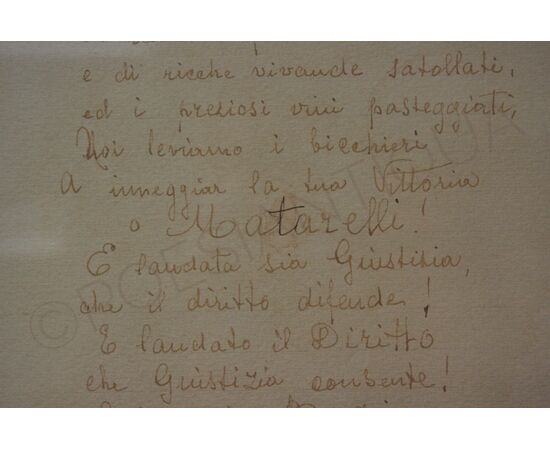 e di ricche vivande satollati,
ed i preziosi vini pasteggiati,
Noi leviamo i bicchieri
A inneggiar la tua Vittoria
o Matarelli!
E laudata sia Giustizia,
che il diritto difende!
E laudato il Diritto
che Giustizia consente!